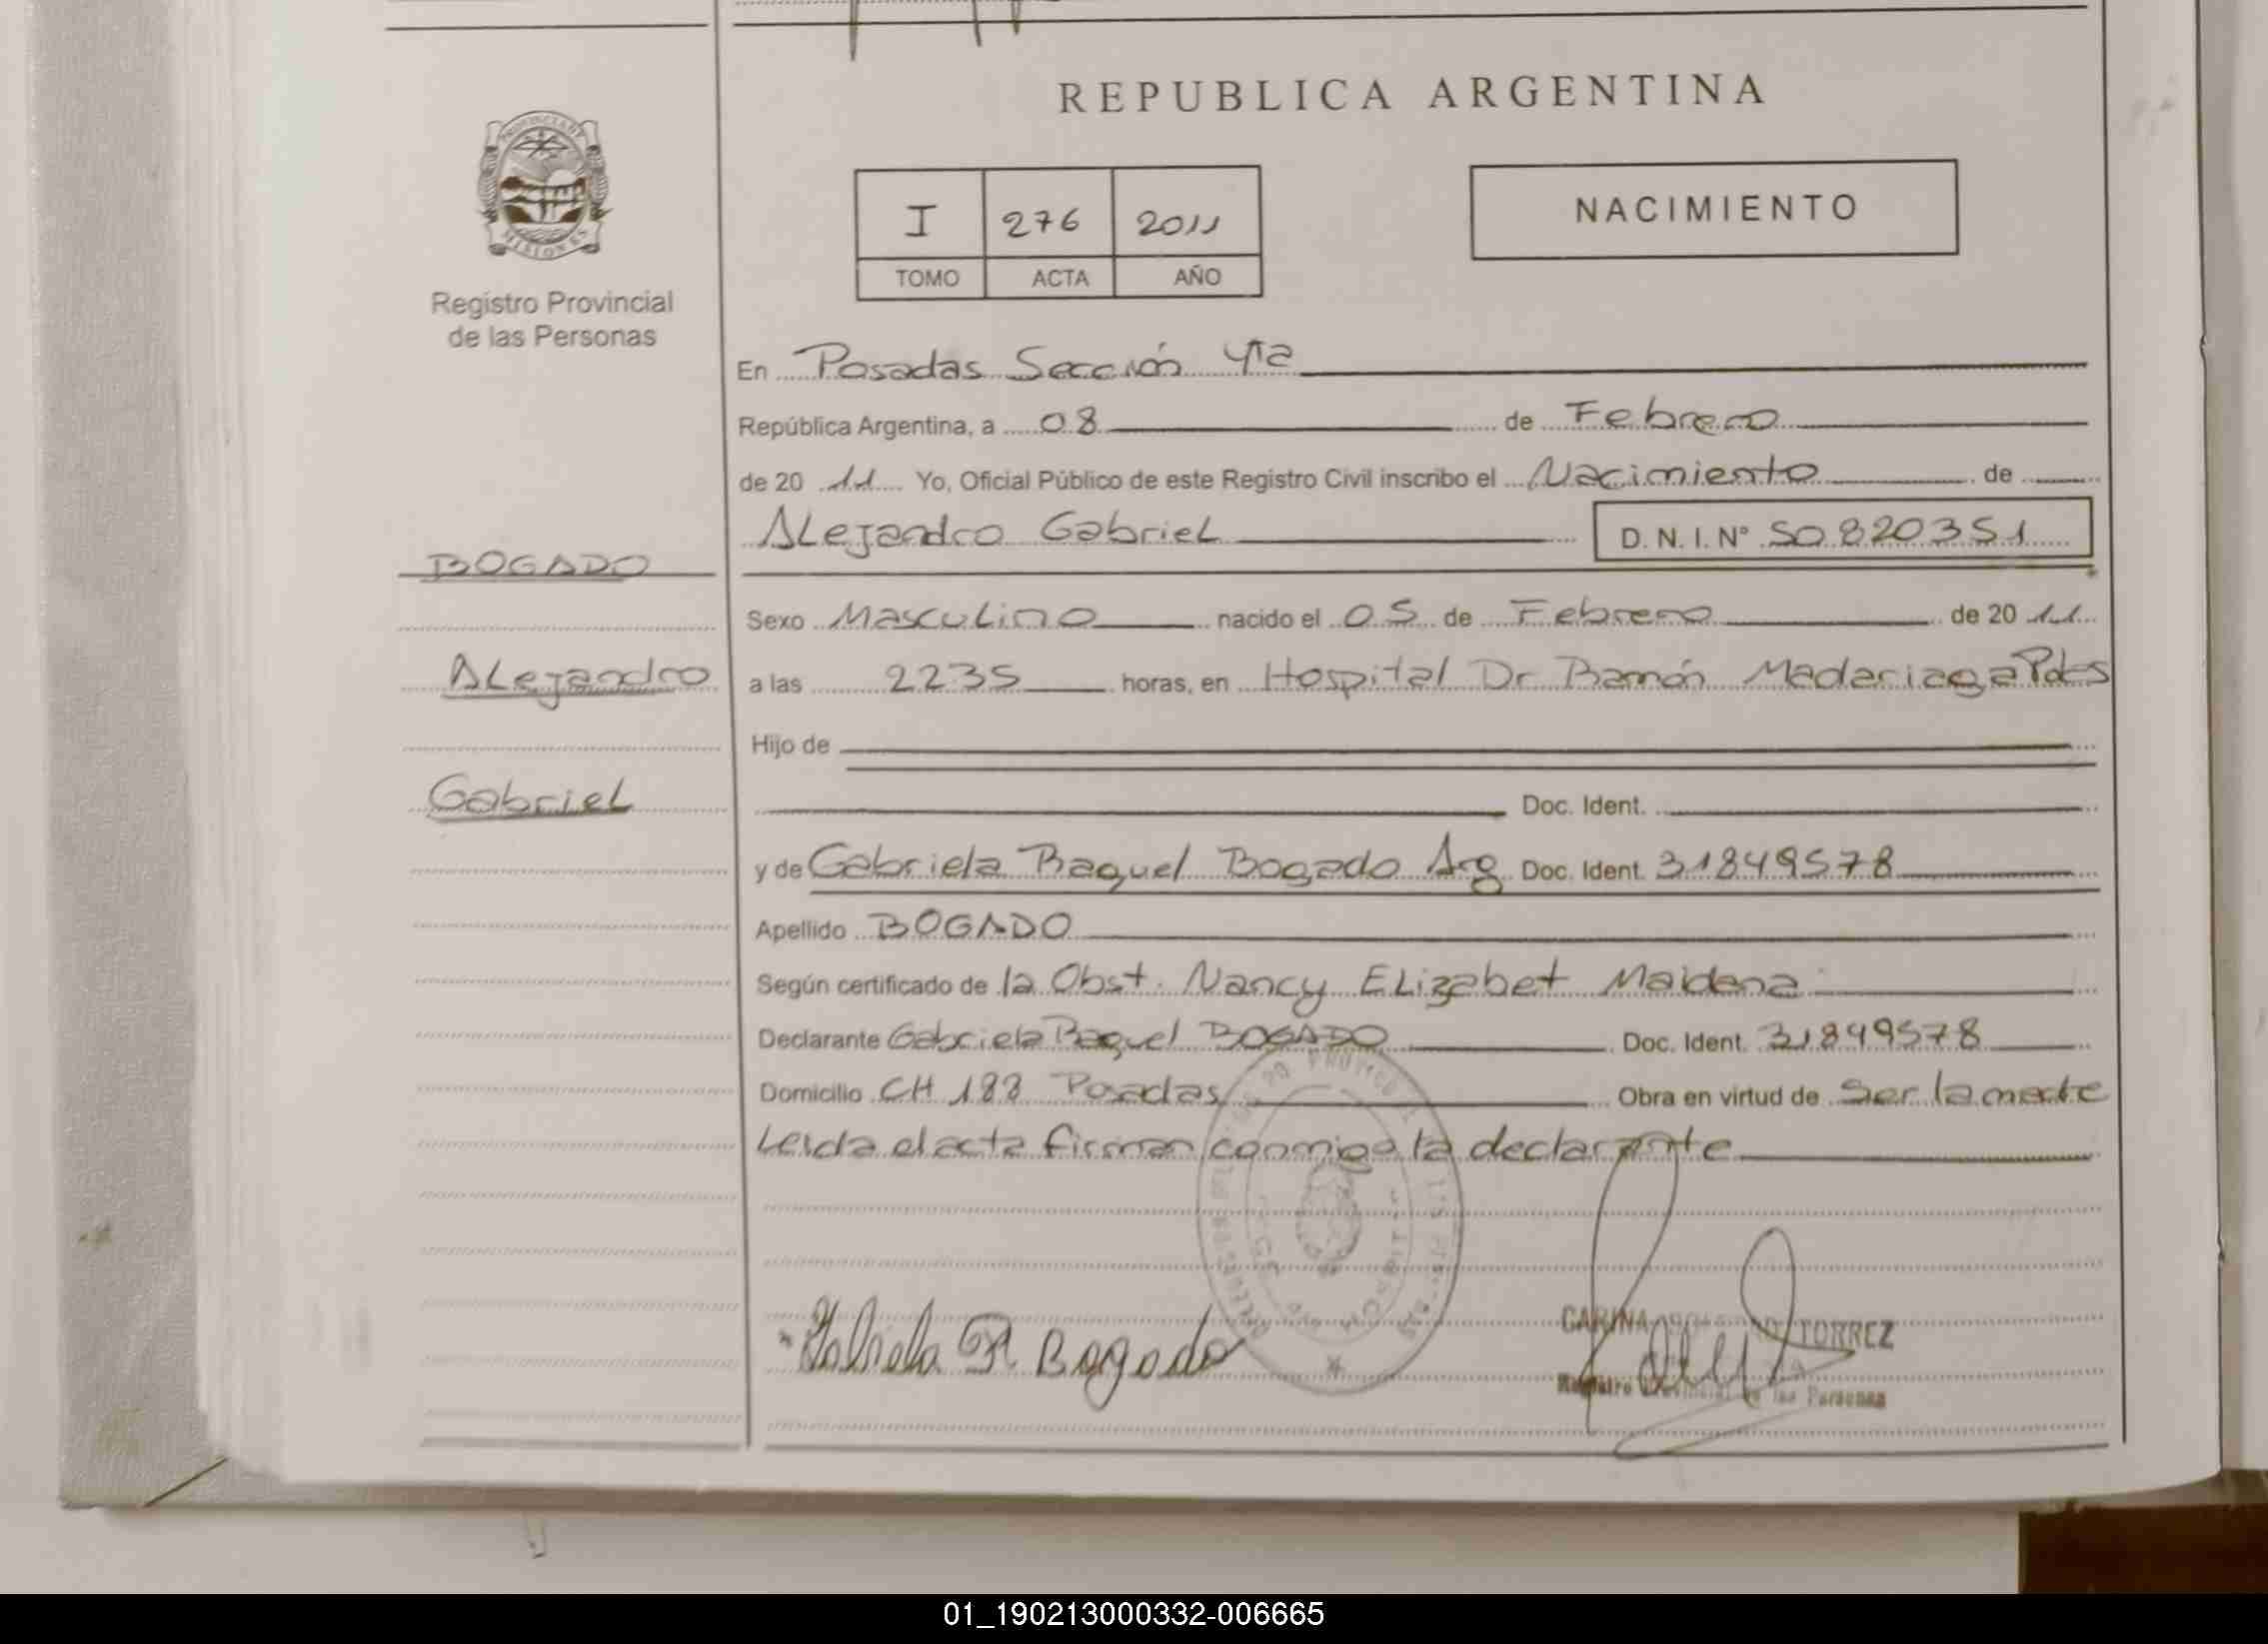 REPUBLICA ARGENTINA
PROVINCIA DE
MISIONES
Registro Provincial
de las Personas
I 276 2011
TOMO ACTA AÑO
NACIMIENTO
En Posadas Sección 4ta
República Argentina, a 08 de Febrero
de 20 11 Yo, Oficial Público de este Registro Civil inscribo el Nacimiento de
Alejandro Gabriel D.N.I. Nº 50820351
BOGADO
Sexo Masculino nacido el 05 de Febrero de 20 11
Alejandro
a las 2235 horas, en Hospital Dr Ramón Madariaga Pdas
Hijo de
Gabriel
Doc. Ident.
y de Gabriela Raquel Bogado Arg Doc. Ident. 31849578
Apellido BOGADO
Según certificado de la Obst. Nancy Elizabet Maidana
Declarante Gabriela Raquel BOGADO Doc. Ident. 31849578
Domicilio CH 188 Posadas Obra en virtud de Ser la madre
Leida el acta firman conmigo la declarante
Gabriela R Bogado
CARINA TORREZ
Registro Provincial de las Personas
01_190213000332-006665